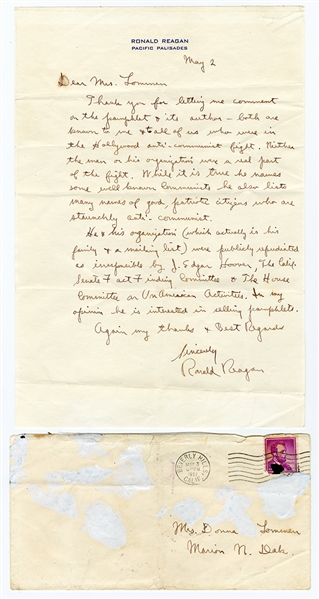 RONALD REAGAN
PACIFIC PALISADES
May 2
Dear Mrs. Lommen
Thank you for letting me comment
on the pamphlet & its author – both are
known to me & to all of us who were in
the Hollywood anti-communist fight. Neither
the man or his organization were a real part
of the fight. While it is true he names
some well known Communists he also lists
many names of good, patriotic citizens who are
staunchly anti-communist.
He & his organization (which actually is his
family & a mailing list) were publicly repudiated
as irresponsible by J. Edgar Hoover, The Calif.
Senate Fact Finding Committee & The House
Committee on UnAmerican Activities. In my
opinion he is interested in selling pamphlets.
Again my thanks & Best Regards
Sincerely
Ronald Reagan
BEVERLY HILLS
MAY 3
CALIF.
Mrs. Donna Lommen
Marion N. Dak.